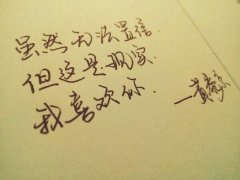 虽然无法置信.
但这是现实.
我喜欢你.